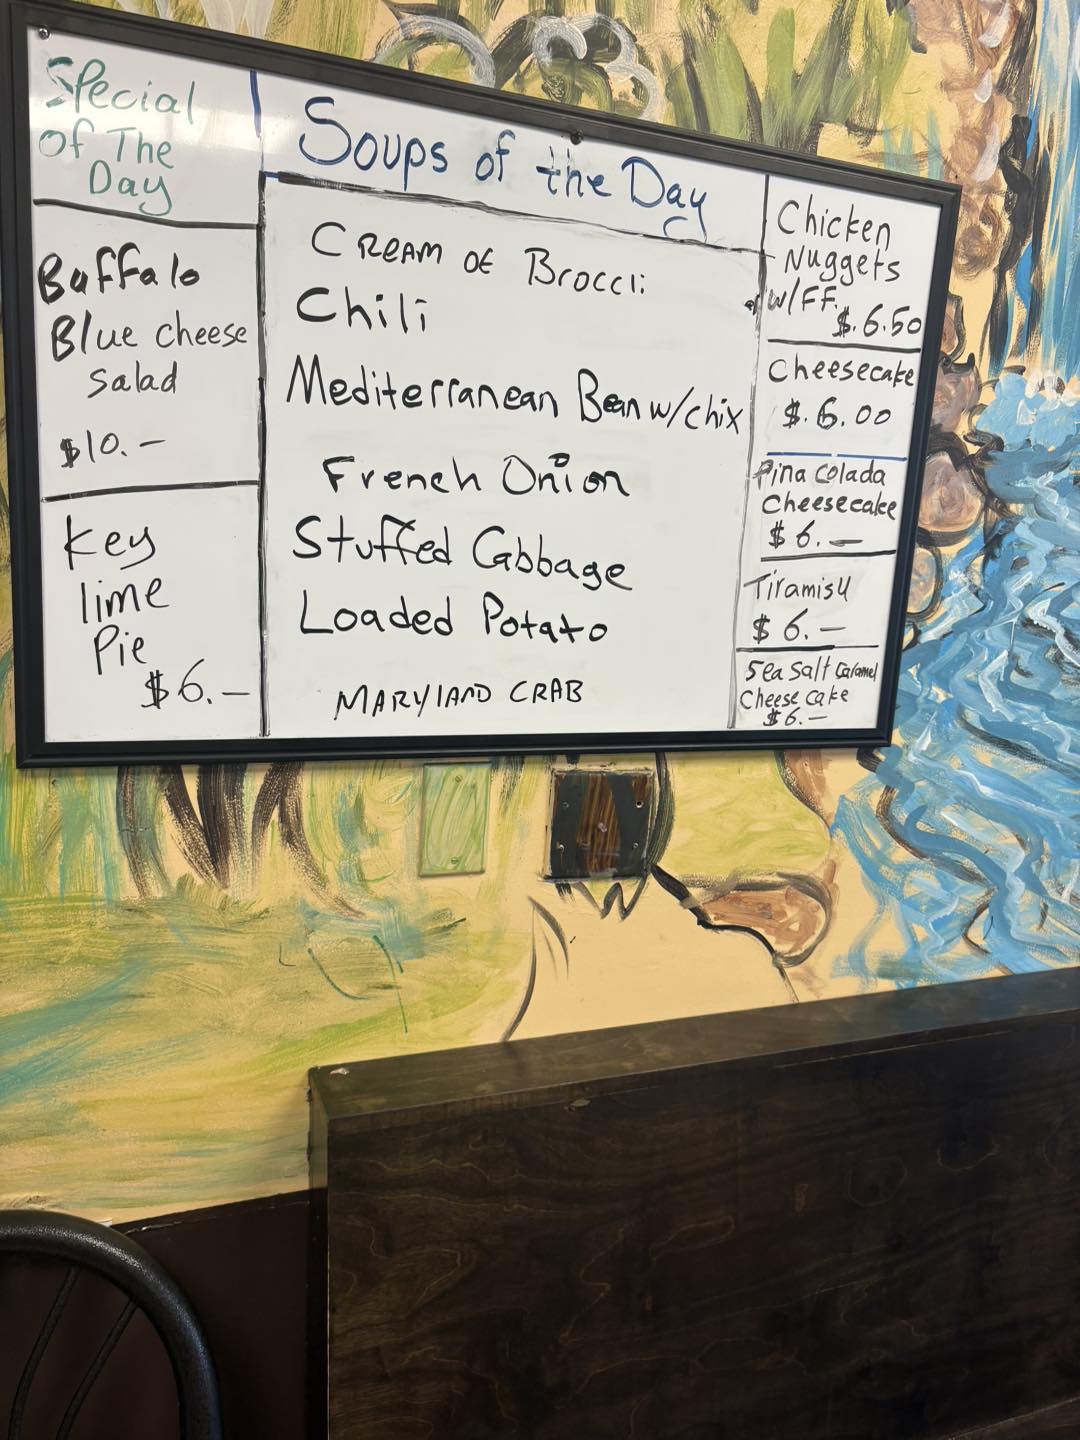 Special
of The
Day
Buffalo
Blue cheese
salad
$10.-
Key
lime
Pie
$6.-
Soups of the Day
CREAM OF Broccli
Chili
Mediterranean Bean w/chix
French Onion
Stuffed Cabbage
Loaded Potato
MARYLAND CRAB
Chicken
Nuggets
w/FF.
$.6.50
Cheesecake
$.6.00
Pina Colada
Cheesecake
$6.-
Tiramisu
$6.-
Sea Salt Caramel
Cheese cake
$6.-